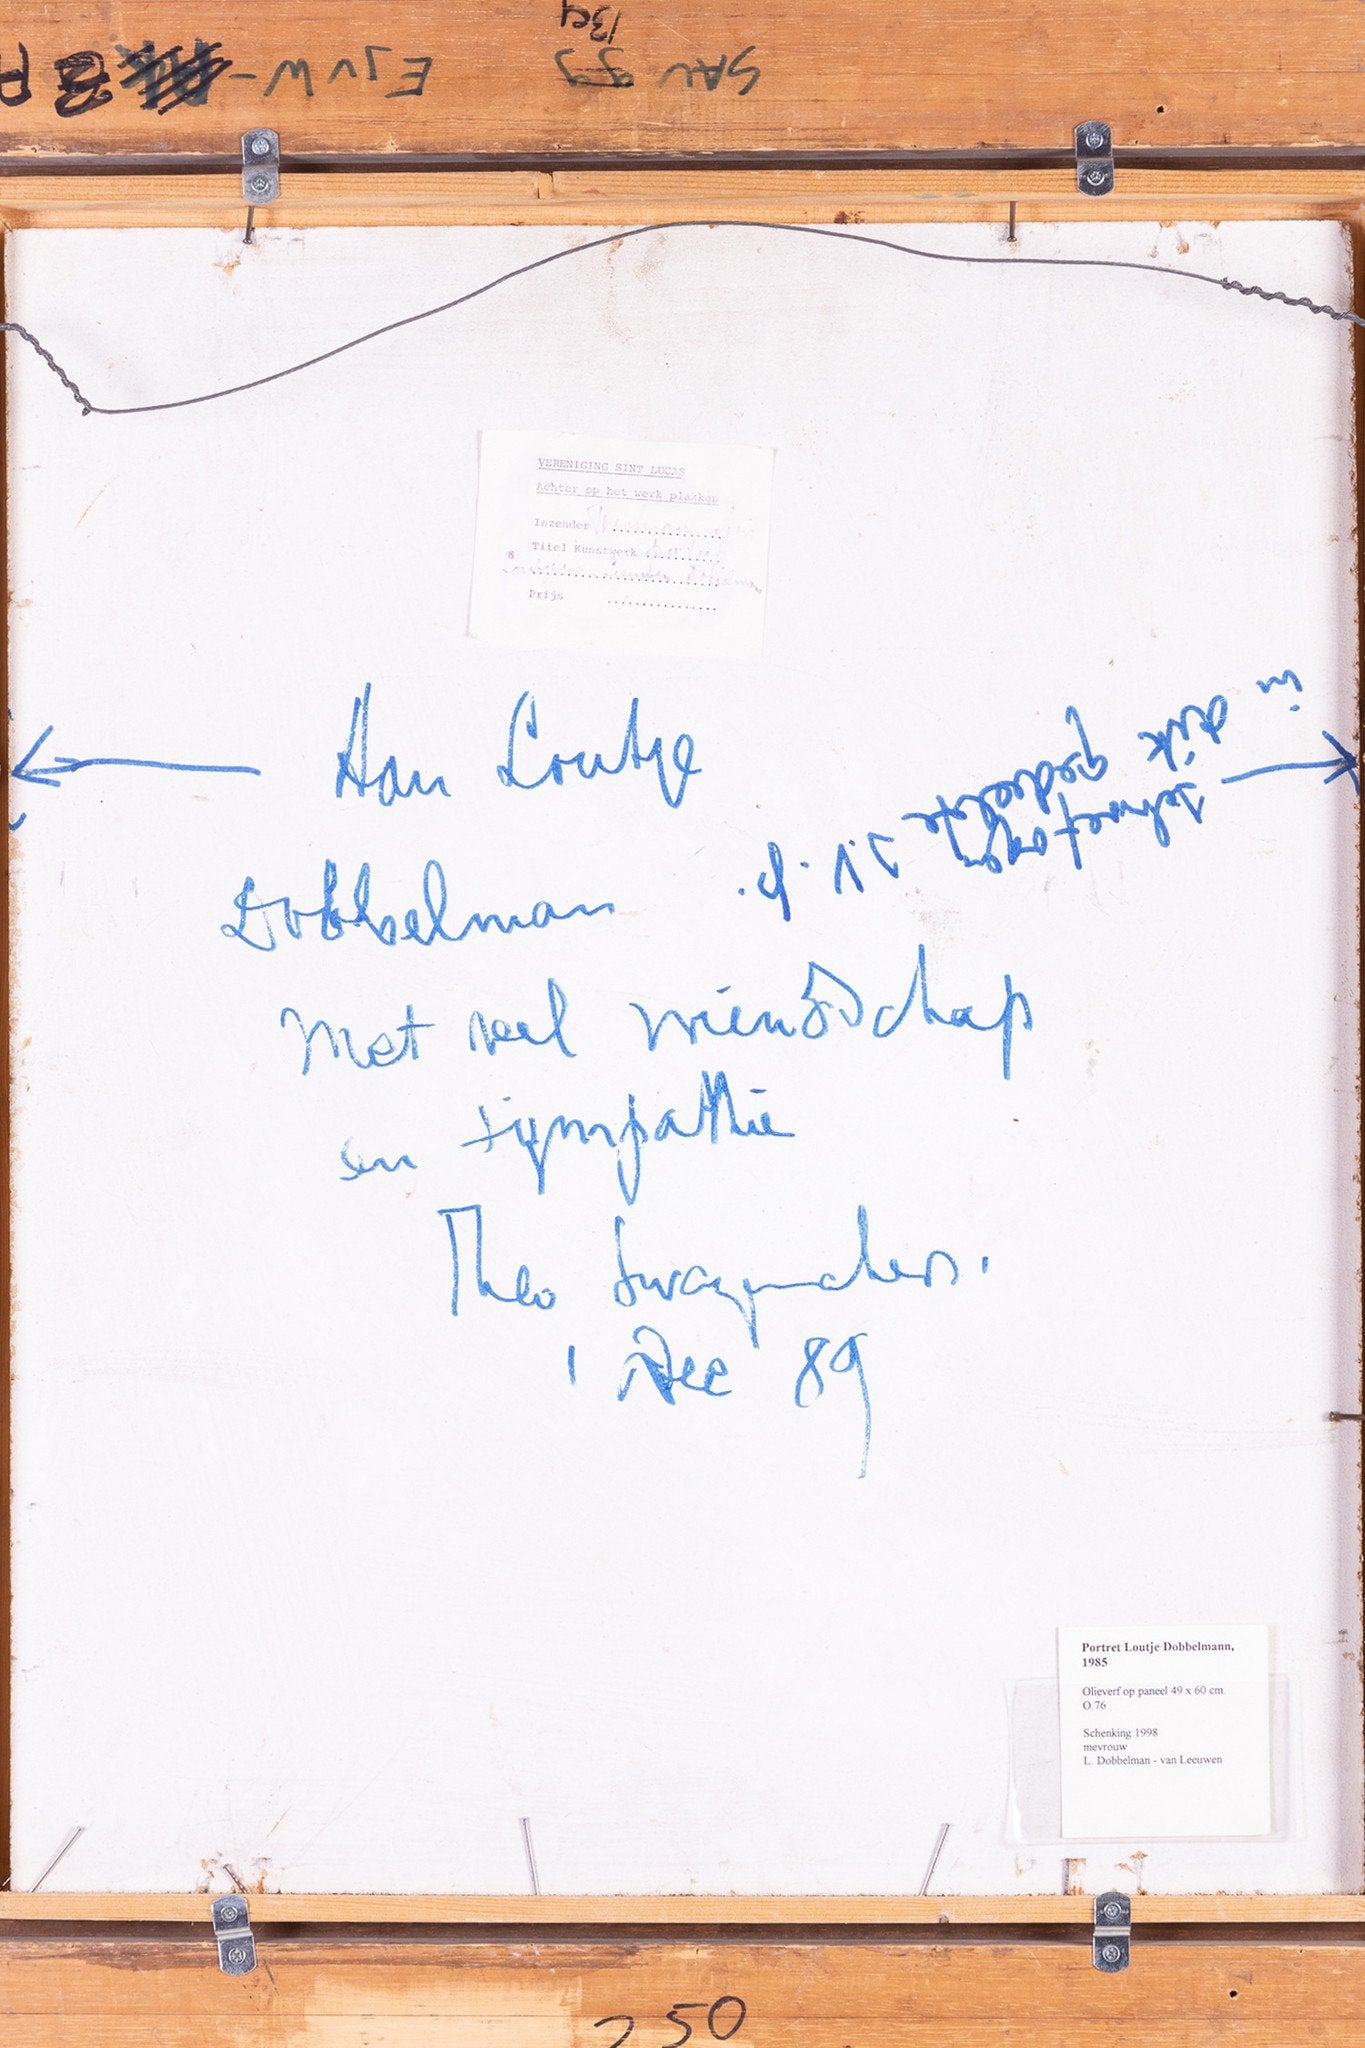 SAU 99
1301
EJVW-
VERENIGING SINT LUCAS
Achter op het werk plakken
Inzender
Titel Kunstwerk
Prijs
Aan Loutje
Dobbelman
Met veel vriendschap
en sympathie
Theo Swagemakers.
1 Dec 89
s.v.p.
schroef ogen
in dik gedeelte
Portret Loutje Dobbelmann,
1985
Olieverf op paneel 49 x 60 cm.
O.76
Schenking 1998
mevrouw
L. Dobbelman - van Leeuwen
250